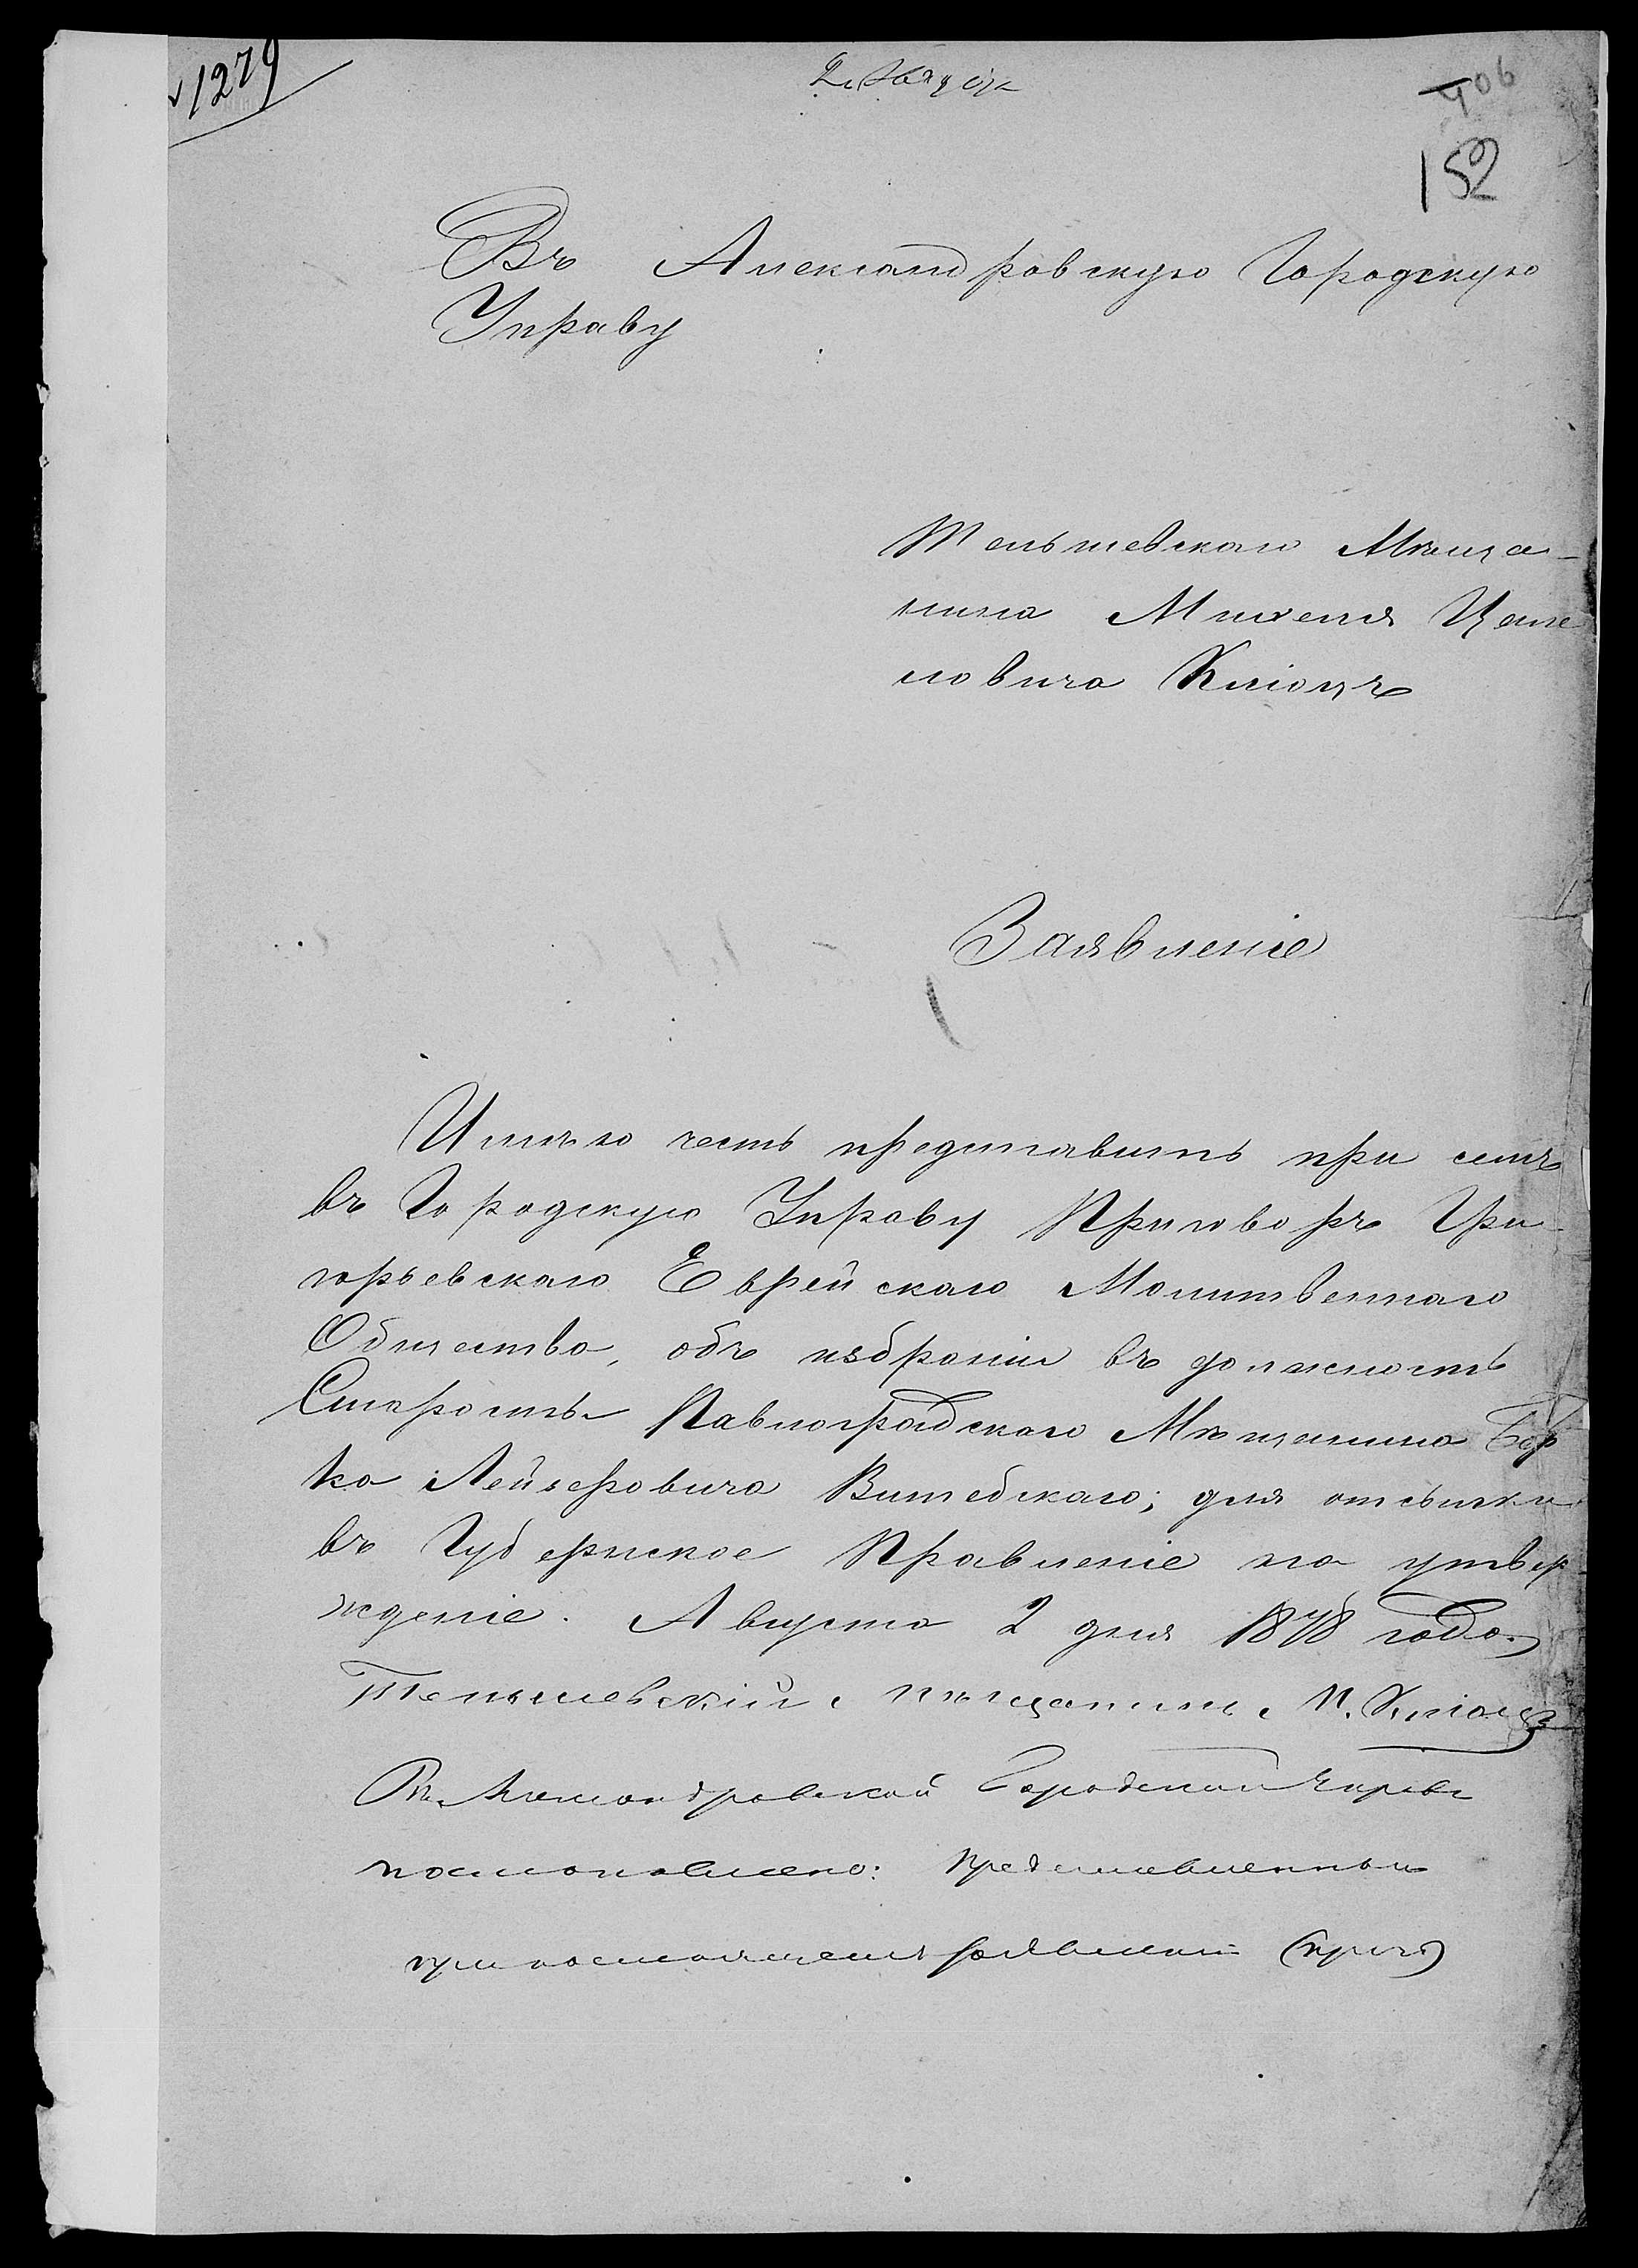 1279
2 Августа
406
152
Въ Александровскую Городскую
Управу
Тельшевского Мѣща-
нина Михеля
ловича Клюцъ
Заявленіе
Имѣю честь представить при семъ
въ Городскую Управу Приговоръ Гри-
горьевскаго Еврейскаго Молитвеннаго
Общества, объ избраніи въ должность
Старосты Павлоградскаго Мѣщанина Бер
ка Лейзеровича Витебскаго; для отсылки
въ Губернское Правленіе на утвер-
жденіе. Августа 2 дня 1878 года.
Тельшевскій мѣщанинъ М. Клюцъ
Въ Александровской Городской Управѣ
постановлено: представленный
при настоящемъ заявленіи